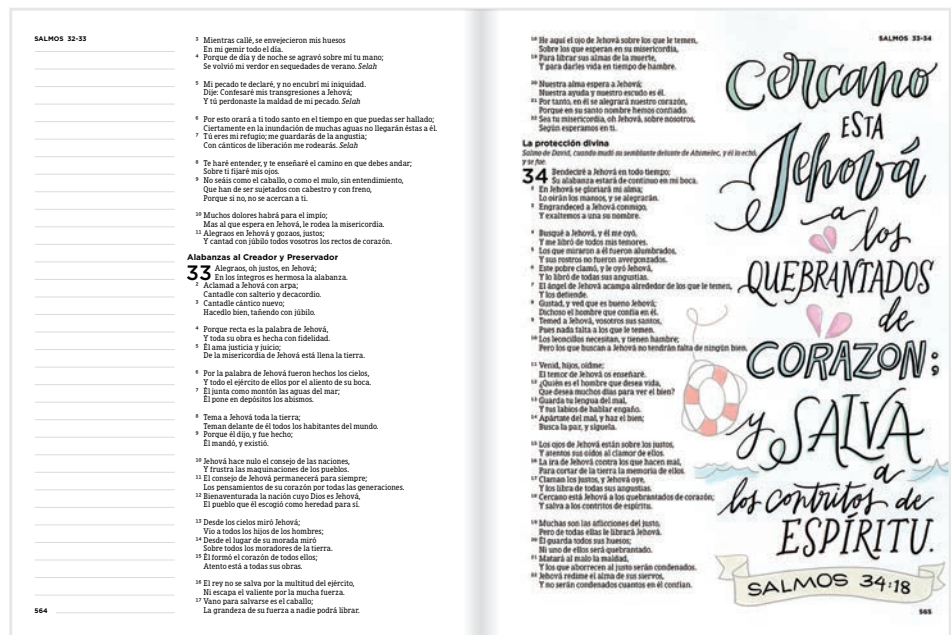 SALMOS 32-33
3 Mientras callé, se envejecieron mis huesos
En mi gemir todo el día.
4 Porque de día y de noche se agravó sobre mí tu mano;
Se volvió mi verdor en sequedades de verano. Selah
5 Mi pecado te declaré, y no encubrí mi iniquidad.
Dije: Confesaré mis transgresiones a Jehová;
Y tú perdonaste la maldad de mi pecado. Selah
6 Por esto orará a ti todo santo en el tiempo en que puedas ser hallado;
Ciertamente en la inundación de muchas aguas no llegarán éstas a él.
7 Tú eres mi refugio; me guardarás de la angustia;
Con cánticos de liberación me rodearás. Selah
8 Te haré entender, y te enseñaré el camino en que debes andar;
Sobre ti fijaré mis ojos.
9 No seáis como el caballo, o como el mulo, sin entendimiento,
Que han de ser sujetados con cabestro y con freno,
Porque si no, no se acercan a ti.
10 Muchos dolores habrá para el impío;
Mas al que espera en Jehová, le rodea la misericordia.
11 Alegraos en Jehová y gozaos, justos;
Y cantad con júbilo todos vosotros los rectos de corazón.
Alabanzas al Creador y Preservador
33 Alegraos, oh justos, en Jehová;
En los íntegros es hermosa la alabanza.
2 Aclamad a Jehová con arpa;
Cantadle con salterio y decacordio.
3 Cantadle cántico nuevo;
Hacedlo bien, tañendo con júbilo.
4 Porque recta es la palabra de Jehová,
Y toda su obra es hecha con fidelidad.
5 Él ama justicia y juicio;
De la misericordia de Jehová está llena la tierra.
6 Por la palabra de Jehová fueron hechos los cielos,
Y todo el ejército de ellos por el aliento de su boca.
7 Él junta como montón las aguas del mar;
Él pone en depósitos los abismos.
8 Tema a Jehová toda la tierra;
Teman delante de él todos los habitantes del mundo.
9 Porque él dijo, y fue hecho;
Él mandó, y existió.
10 Jehová hace nulo el consejo de las naciones,
Y frustra las maquinaciones de los pueblos.
11 El consejo de Jehová permanecerá para siempre;
Los pensamientos de su corazón por todas las generaciones.
12 Bienaventurada la nación cuyo Dios es Jehová,
El pueblo que él escogió como heredad para sí.
13 Desde los cielos miró Jehová;
Vio a todos los hijos de los hombres;
14 Desde el lugar de su morada miró
Sobre todos los moradores de la tierra.
15 Él formó el corazón de todos ellos;
Atento está a todas sus obras.
16 El rey no se salva por la multitud del ejército,
Ni escapa el valiente por la mucha fuerza.
17 Vano para salvarse es el caballo;
La grandeza de su fuerza a nadie podrá librar.
564
SALMOS 33-34
18 He aquí el ojo de Jehová sobre los que le temen,
Sobre los que esperan en su misericordia,
19 Para librar sus almas de la muerte,
Y para darles vida en tiempo de hambre.
20 Nuestra alma espera a Jehová;
Nuestra ayuda y nuestro escudo es él.
21 Por tanto, en él se alegrará nuestro corazón,
Porque en su santo nombre hemos confiado.
22 Sea tu misericordia, oh Jehová, sobre nosotros,
Según esperamos en ti.
La protección divina
Salmo de David, cuando mudó su semblante delante de Abimelec, y él lo echó,
y se fue.
34 Bendeciré a Jehová en todo tiempo;
Su alabanza estará de continuo en mi boca.
2 En Jehová se gloriará mi alma;
Lo oirán los mansos, y se alegrarán.
3 Engrandeced a Jehová conmigo,
Y exaltemos a una su nombre.
4 Busqué a Jehová, y él me oyó,
Y me libró de todos mis temores.
5 Los que miraron a él fueron alumbrados,
Y sus rostros no fueron avergonzados.
6 Este pobre clamó, y le oyó Jehová,
Y lo libró de todas sus angustias.
7 El ángel de Jehová acampa alrededor de los que le temen,
Y los defiende.
8 Gustad, y ved que es bueno Jehová;
Dichoso el hombre que confía en él.
9 Temed a Jehová, vosotros sus santos,
Pues nada falta a los que le temen.
10 Los leoncillos necesitan, y tienen hambre;
Pero los que buscan a Jehová no tendrán falta de ningún bien.
11 Venid, hijos, oídme;
El temor de Jehová os enseñaré.
12 ¿Quién es el hombre que desea vida,
Que desea muchos días para ver el bien?
13 Guarda tu lengua del mal,
Y tus labios de hablar engaño.
14 Apártate del mal, y haz el bien;
Busca la paz, y síguela.
15 Los ojos de Jehová están sobre los justos,
Y atentos sus oídos al clamor de ellos.
16 La ira de Jehová contra los que hacen mal,
Para cortar de la tierra la memoria de ellos.
17 Claman los justos, y Jehová oye,
Y los libra de todas sus angustias.
18 Cercano está Jehová a los quebrantados de corazón;
Y salva a los contritos de espíritu.
19 Muchas son las aflicciones del justo,
Pero de todas ellas le librará Jehová.
20 Él guarda todos sus huesos;
Ni uno de ellos será quebrantado.
21 Matará al malo la maldad,
Y los que aborrecen al justo serán condenados.
22 Jehová redime el alma de sus siervos,
Y no serán condenados cuantos en él confían.
cercano
ESTA
Jehová
a los
QUEBRANTADOS
de
CORAZON;
y SALVA
a
los contritos de
ESPÍRITU.
SALMOS 34:18
565